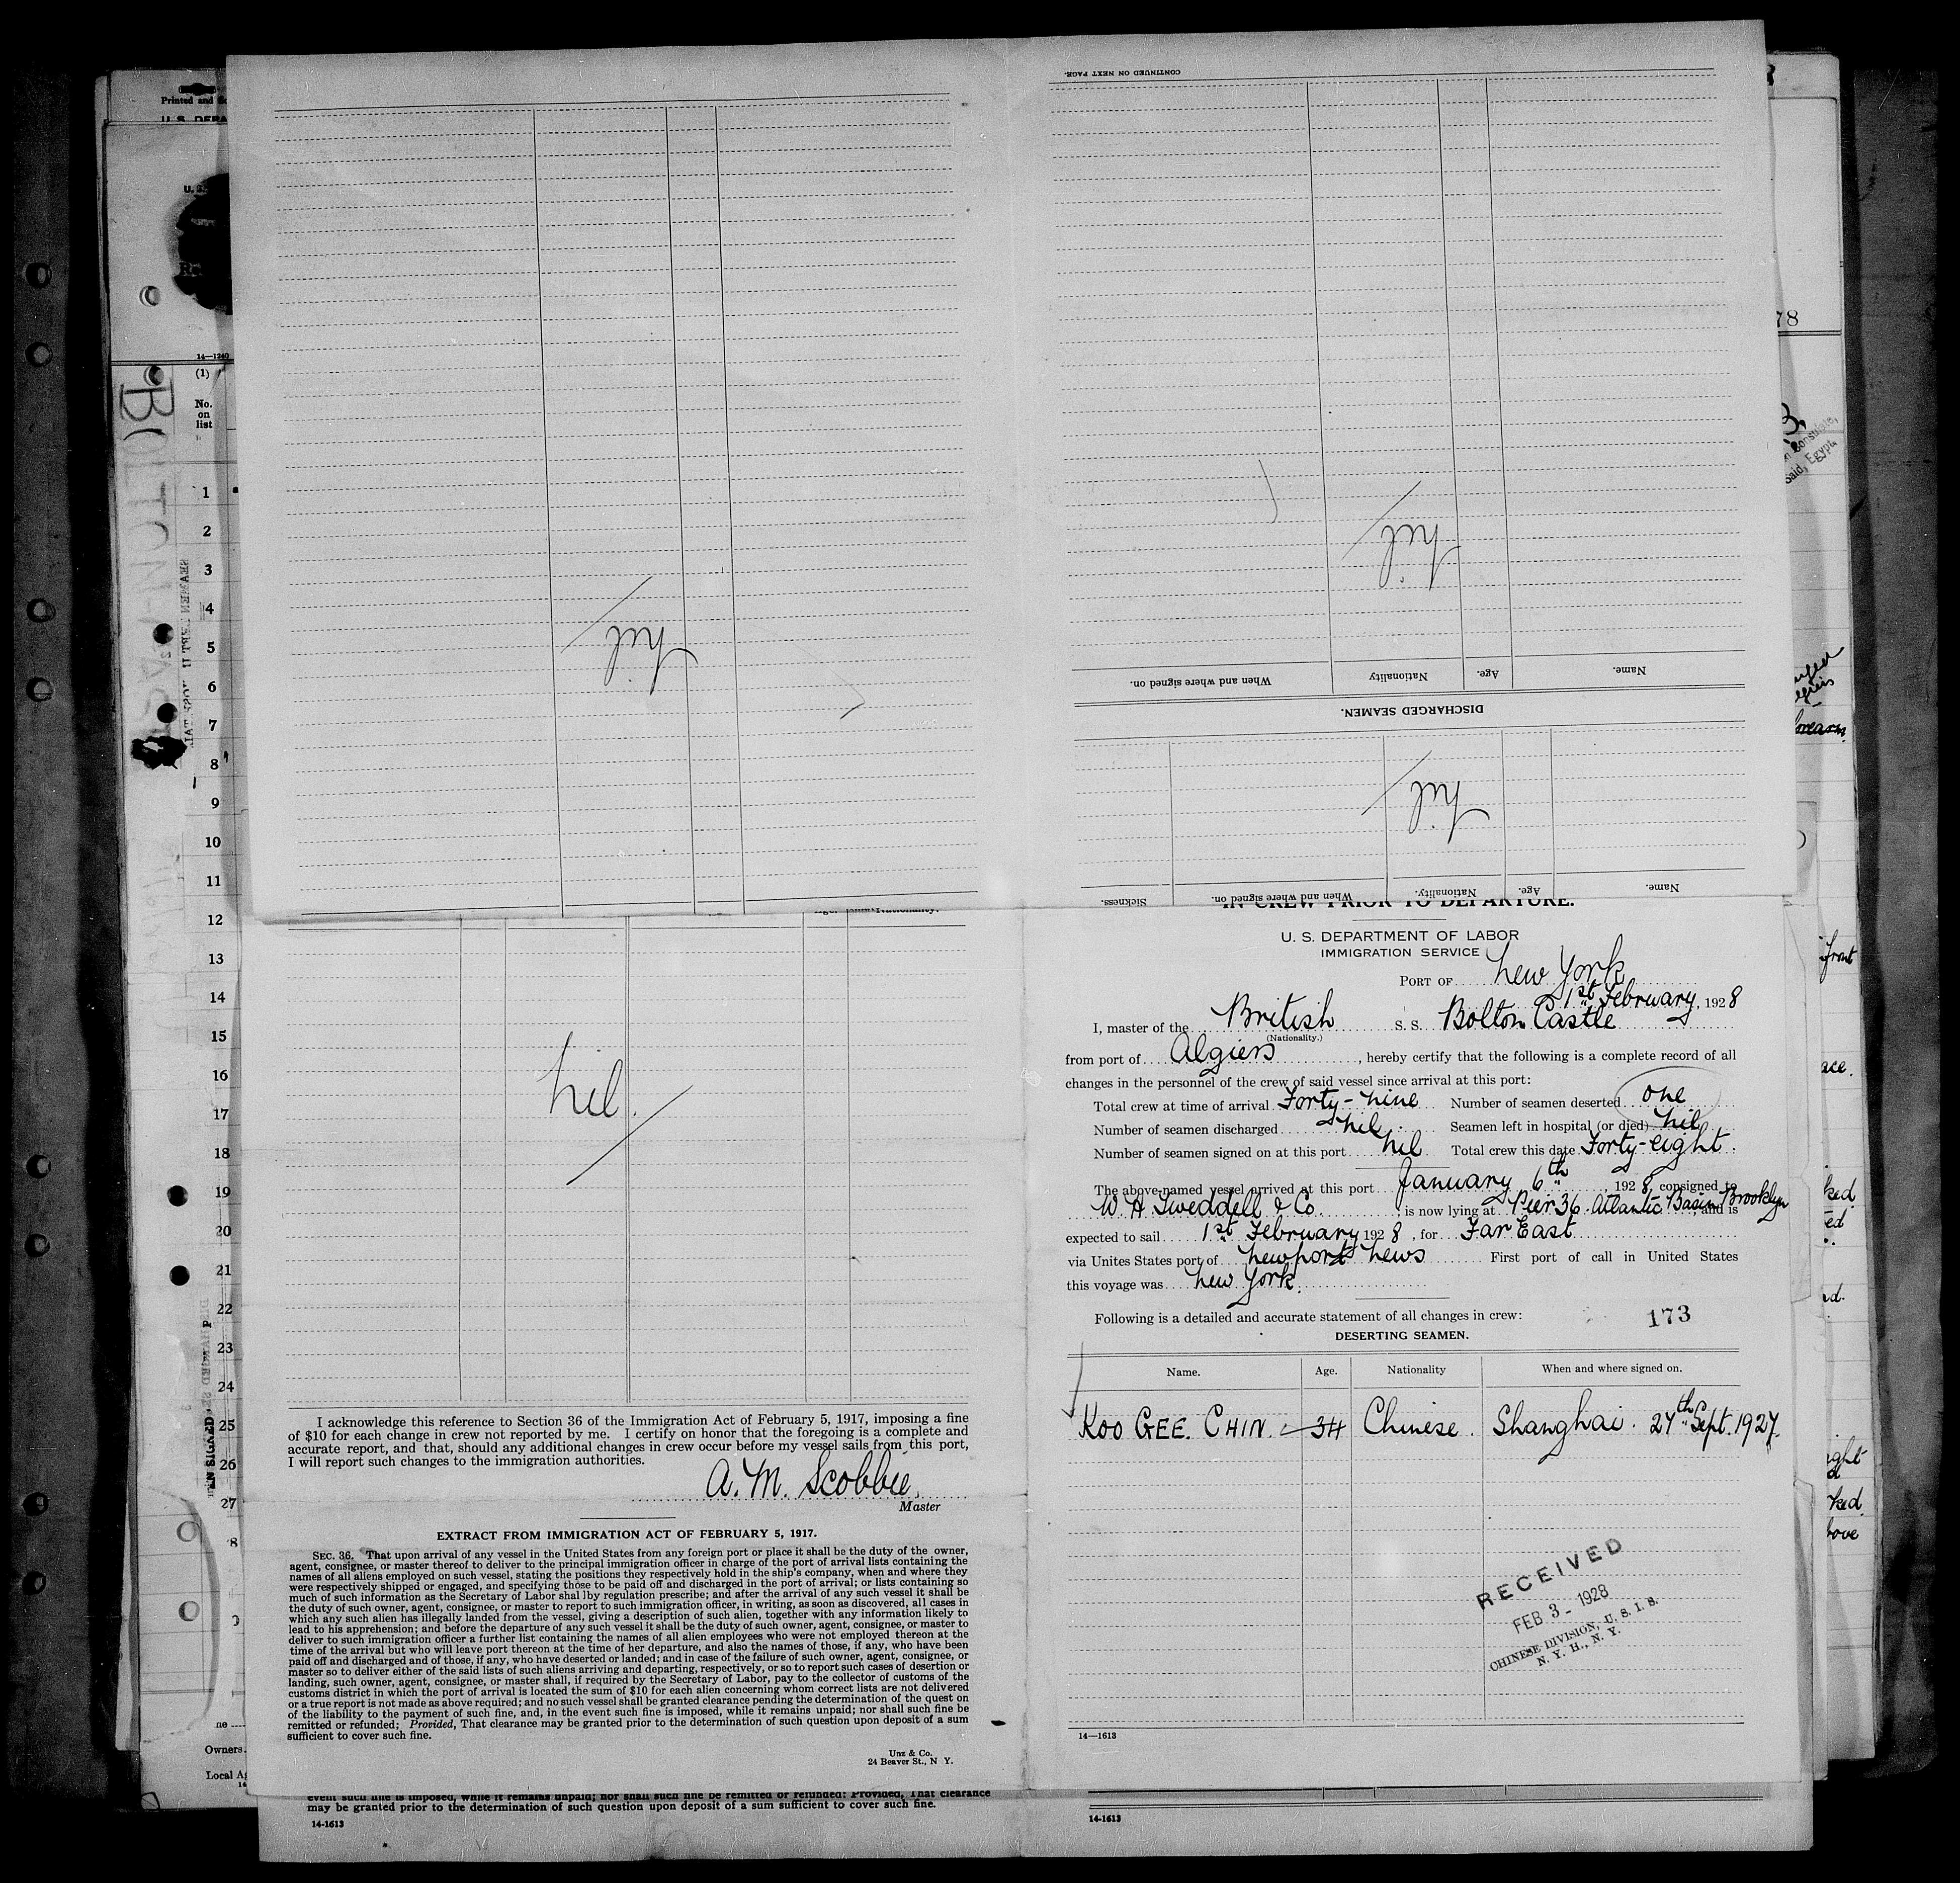 CONTINUED ON NEXT PAGE.
nil
nil
When and where signed on.
Nationality
Age.
Name.
DISCHARGED SEAMEN.
nil
Sickness.
When and where signed on.
Nationality.
Age.
Name.
Printed and
U. S. DEPA
U. S.
14—1240
(1)
No.
on
list
BOLTON CAS
1
2
3
4
5
6
7
8
9
10
11
12
13
14
15
16
17
18
19
20
21
22
23
24
25
26
27
Owners.
Local
78
Said, Egypt.
forearm.
front
ked
ked.
bove
IN CREW PRIOR TO DEPARTURE.
U. S. DEPARTMENT OF LABOR
IMMIGRATION SERVICE
PORT OF New York
1st February, 1928
I, master of the British S. S. Bolton Castle
(Nationality.)
from port of Algiers, hereby certify that the following is a complete record of all
changes in the personnel of the crew of said vessel since arrival at this port:
Total crew at time of arrival Forty-nine Number of seamen deserted one
Number of seamen discharged nil Seamen left in hospital (or died) nil
Number of seamen signed on at this port nil Total crew this date Forty-eight.
The above-named vessel arrived at this port January 6th, 1928, consigned to
W. A Tweddell & Co. is now lying at Pier 36 Atlantic Basin Brooklyn, and is
expected to sail 1st February 1928, for Far East
via Unites States port of Newport News First port of call in United States
this voyage was New York.
Following is a detailed and accurate statement of all changes in crew:
173
DESERTING SEAMEN.
Name. Age. Nationality When and where signed on.
KOO GEE. CHIN. 34 Chinese. Shanghai. 27th Sept. 1927.
RECEIVED
FEB 3 - 1928
CHINESE DIVISION, U. S. I. S.
N. Y. H., N. Y.
14—1613
nil.
I acknowledge this reference to Section 36 of the Immigration Act of February 5, 1917, imposing a fine
of $10 for each change in crew not reported by me. I certify on honor that the foregoing is a complete and
accurate report, and that, should any additional changes in crew occur before my vessel sails from this port,
I will report such changes to the immigration authorities.
A. M. Scobbie.
Master
EXTRACT FROM IMMIGRATION ACT OF FEBRUARY 5, 1917.
SEC. 36. That upon arrival of any vessel in the United States from any foreign port or place it shall be the duty of the owner,
agent, consignee, or master thereof to deliver to the principal immigration officer in charge of the port of arrival lists containing the
names of all aliens employed on such vessel, stating the positions they respectively hold in the ship's company, when and where they
were respectively shipped or engaged, and specifying those to be paid off and discharged in the port of arrival; or lists containing so
much of such information as the Secretary of Labor shal lby regulation prescribe; and after the arrival of any such vessel it shall be
the duty of such owner, agent, consignee, or master to report to such immigration officer, in writing, as soon as discovered, all cases in
which any such alien has illegally landed from the vessel, giving a description of such alien, together with any information likely to
lead to his apprehension; and before the departure of any such vessel it shall be the duty of such owner, agent, consignee, or master to
deliver to such immigration officer a further list containing the names of all alien employees who were not employed thereon at the
time of the arrival but who will leave port thereon at the time of her departure, and also the names of those, if any, who have been
paid off and discharged and of those, if any, who have deserted or landed; and in case of the failure of such owner, agent, consignee, or
master so to deliver either of the said lists of such aliens arriving and departing, respectively, or so to report such cases of desertion or
landing, such owner, agent, consignee, or master shall, if required by the Secretary of Labor, pay to the collector of customs of the
customs district in which the port of arrival is located the sum of $10 for each alien concerning whom correct lists are not delivered
or a true report is not made as above required; and no such vessel shall be granted clearance pending the determination of the quest on
of the liability to the payment of such fine, and, in the event such fine is imposed, while it remains unpaid; nor shall such fine be
remitted or refunded; Provided, That clearance may be granted prior to the determination of such question upon deposit of a sum
sufficient to cover such fine.
Unz & Co.
24 Beaver St., N Y.
event such fine is imposed, while it remains unpaid; nor shall such fine be remitted or refunded: Provided, That clearance
may be granted prior to the determination of such question upon deposit of a sum sufficient to cover such fine.
14-1613
14-1613